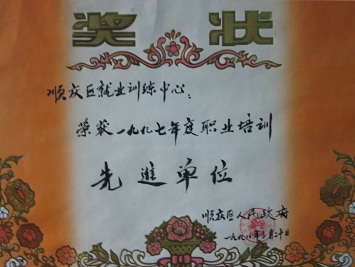 奖状
顺庆区就业训练中心：
荣获一九九七年度职业培训
先進单位
顺庆区人民政府
一九九八年三月二十日